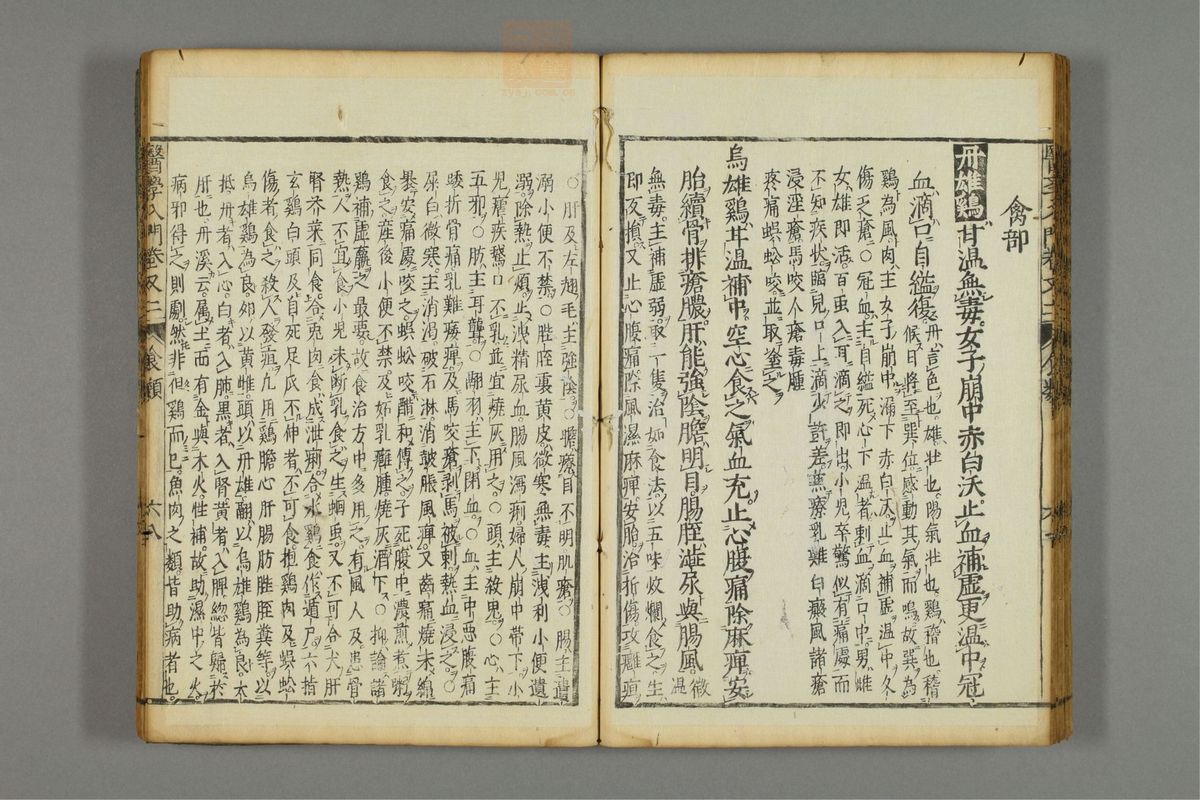 禽部
丹雄鷄甘溫無毒女子崩中赤白沃止血補虛更溫中冠
血滴口自縊復丹言色也雄壯也陽氣壯也鷄稽也稽
候日將至巽位感動其氣而鳴故巽為
鷄為風肉主女子崩中漏下赤白沃止血補虛溫中久
傷乏瘡○冠血主自縊死心下溫者刺血滴口中男雌
女雄即活百虫入耳滴之即出小兒卒驚似有痛處而
不知疾狀臨兒口上滴少許差兼療乳難白癜風諸瘡
浸淫瘡馬咬人瘡毒腫
疼痛蜈蚣咬並取塗之
烏雄鷄甘溫補中空心食之氣血充止心腹痛除麻痺安
胎續骨排瘡膿肝能強陰膽明目腸胵澁尿與腸風微溫
無毒主補虛弱取一隻治如食法以五味炆爛食之生
即反損又止心腹痛除風濕麻痺安胎治折傷攻癰疽
○肝及左翅毛主強陰○膽療目不明肌瘡○腸主遺
溺小便不禁○胵胵裏黃皮微寒無毒主洩利小便遺
溺除熱止煩止洩精尿血腸風瀉痢婦人崩中帶下小
兒瘧疾鵝口不乳並宜燒灰用之○頭主殺鬼○心主
五邪○肪主耳聾○翮羽主下閉血○血主中惡腹痛
踒折骨痛乳難瘘痺及馬咬瘡剥馬被刺熱血浸之○
屎白微寒主消渴破石淋消皷脹風痺又齒痛燒末綿
裹安痛處咬之蜈蚣咬醋和傅之○子死腹中濃煎煮粥
食之產後小便不禁及妬乳癰腫燒灰酒下○抑論諸
鷄補虛羸之最要故食治方中多用之有風人及患骨
熱人不宜食小兒未斷乳食之生蛔虫又不可合犬肝
腎芥菜同食合兎肉食成泄痢合水鷄食作遁尸六指
玄鷄白頭及自死足爪不伸者不可食抱鷄肉及蜈蚣
傷者食之殺人發疽凡用鷄膽心肝腸肪胵胵糞等以
烏雄鷄為良卵以黃雌頭以丹雄翮以烏雄鷄為良大
抵丹者入心白者入肺黑者入腎黃者入脾總皆歸於
肝也丹溪云属土而有金與木火性補故助濕中之火
病邪得之則劇然非但鷄而已魚肉之類皆助病者也
醫學入門卷又二 食類 六八